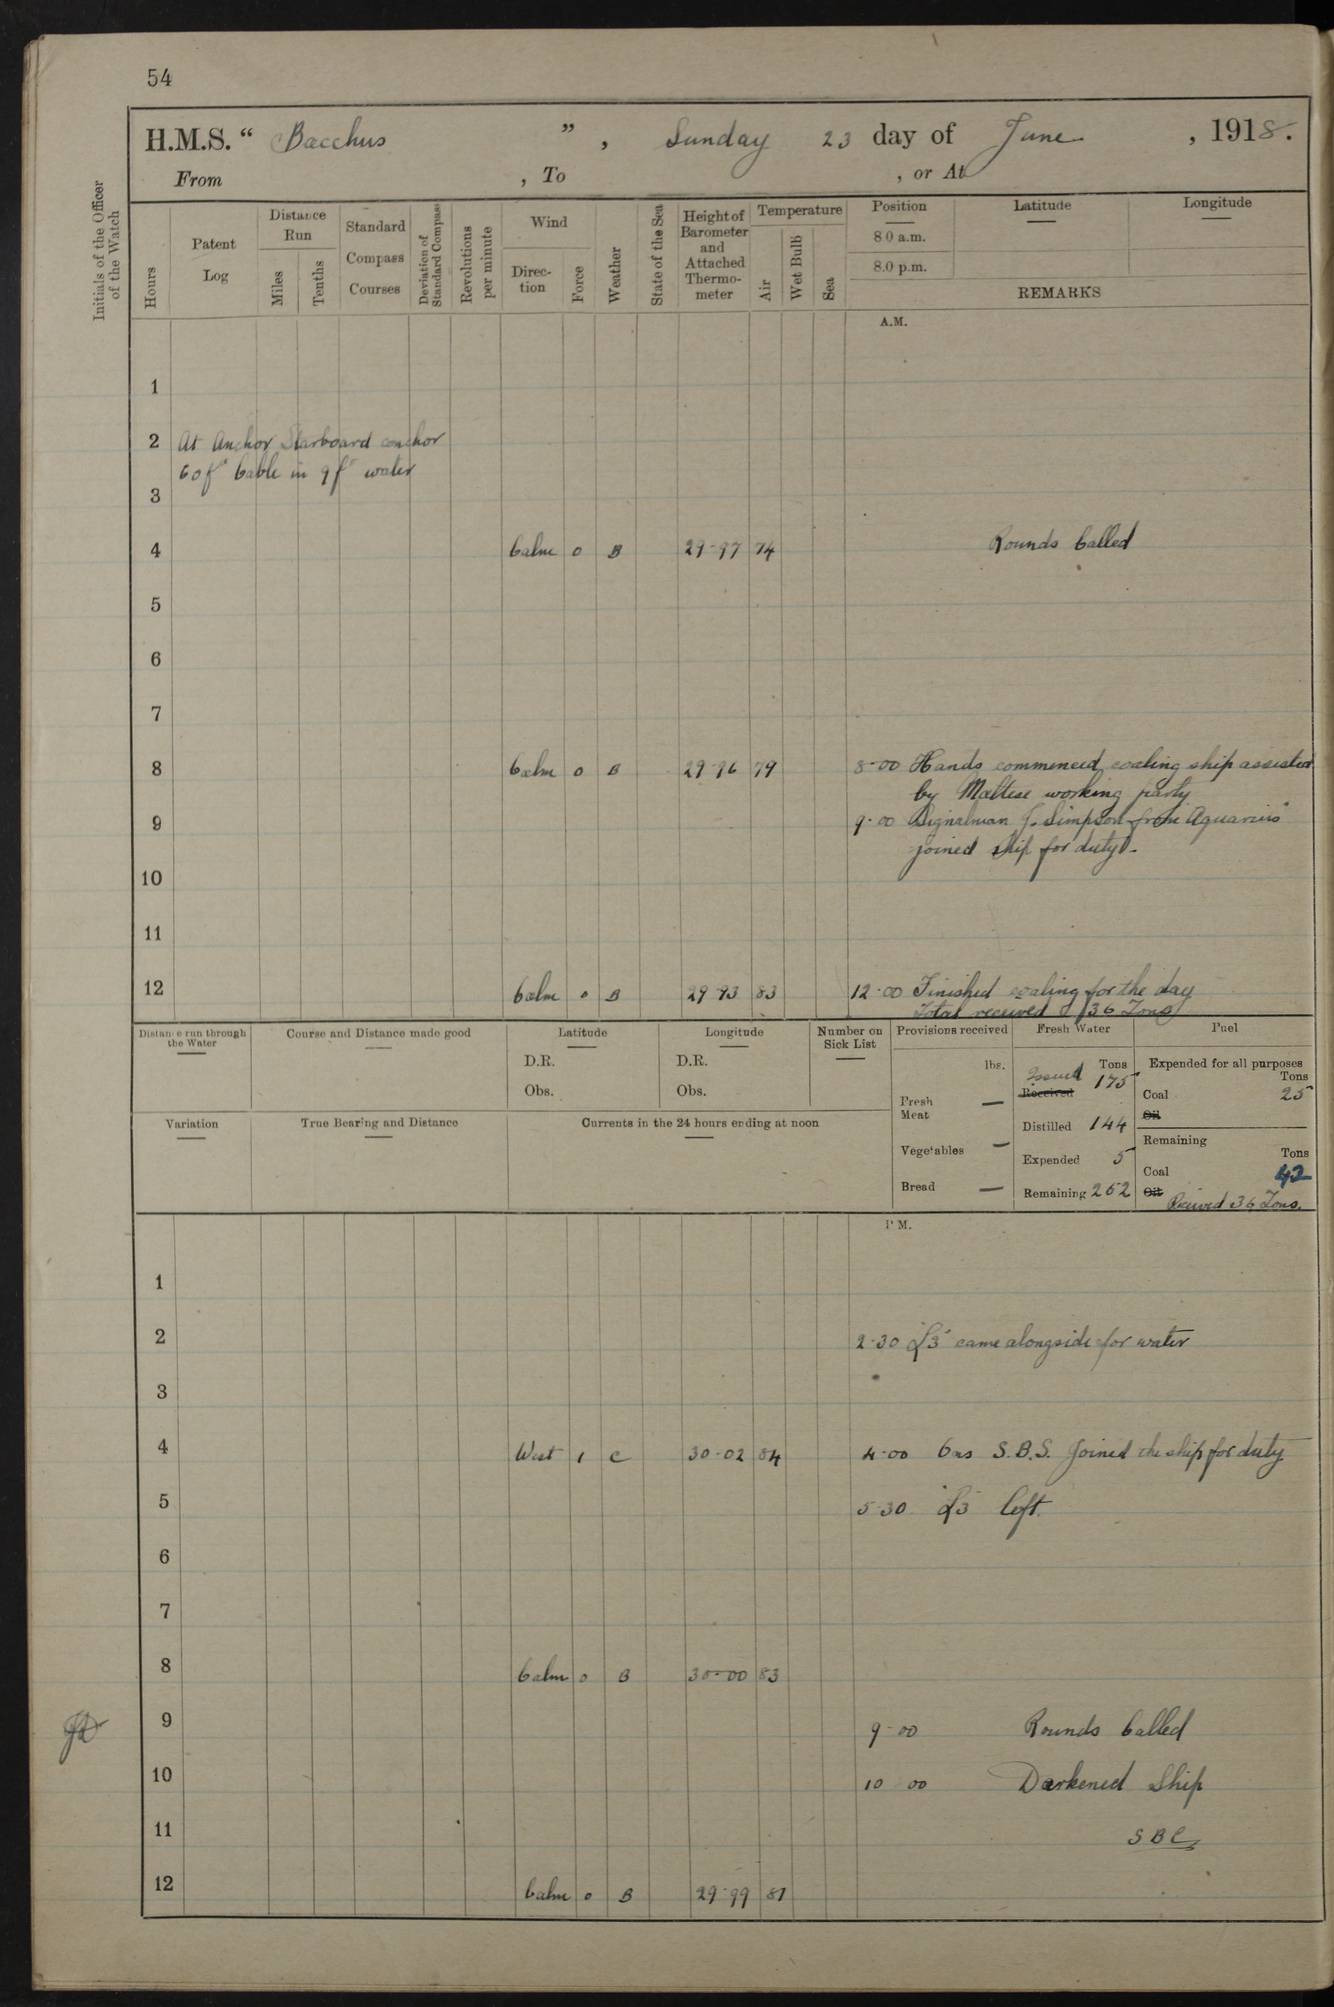 54
H.M.S. “ Bacchus ” , Sunday 23 day of June , 1918.
From , To , or At
Initials of the Officer of the Watch
Hours
Patent Log
Distance Run
Miles
Tenths
Standard Compass Courses
Deviation of Standard Compass
Revolutions per minute
Wind
Direc-tion
Force
Weather
State of the Sea
Height of Barometer and Attached Thermo-meter
Temperature
Air
Wet Bulb
Sea
Position
8 0 a.m.
8.0 p.m.
Latitude
Longitude
REMARKS
A.M.
1
2 At Anchor Starboard anchor
60 fms Cable in 9 fms water
3
4 Calm 0 B 29-97 74 Rounds Called
5
6
7
8 Calm 0 B 29-96 79 8-00 Hands commenced coaling ship assisted
by Maltese working party
9 9-00 Signalman J. Simpson from Aquarius
joined ship for duty.
10
11
12 Calm 0 B 29-93 83 12-00 Finished coaling for the day
Total received 36 Tons
Distance run through the Water
Course and Distance made good
Latitude
D.R.
Obs.
Longitude
D.R.
Obs.
Number on Sick List
Provisions received
lbs.
Fresh Meat —
Vegetables —
Bread —
Fresh Water
Tons
Issued 175
Received
Distilled 144
Expended 5
Remaining 262
Fuel
Expended for all purposes
Tons
Coal 25
Oil
Remaining
Tons
Coal 42
Oil Received 36 Tons.
Variation
True Bearing and Distance
Currents in the 24 hours ending at noon
P M.
1
2 2-30 L3 came alongside for water
3
4 West 1 C 30-02 84 4-00 6 S.B.S. joined the ship for duty
5 5-30 L3 left.
6
7
8 Calm 0 B 30-00 83
9 9-00 Rounds Called
10 10 00 Darkened Ship
11 SBC
12 Calm 0 B 29-99 81